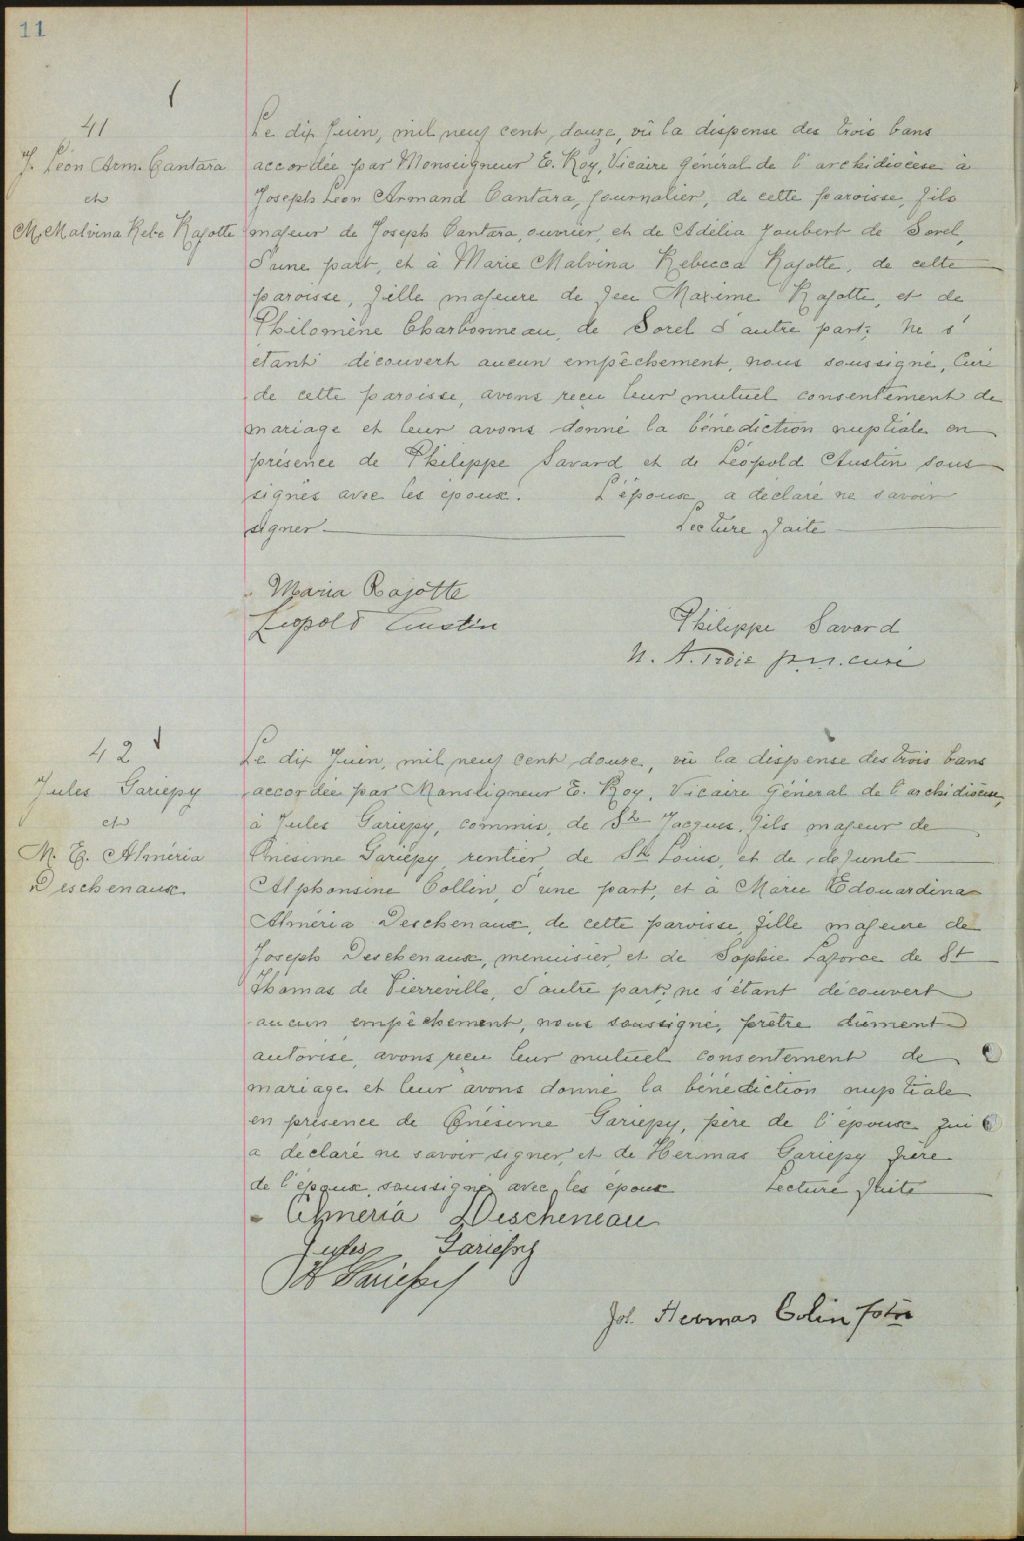 11
41
J. Léon Arm. Cantara
et
M. Malvina Rebe Rajotte
Le dix Juin, mil neuf cent douze, vu la dispense des trois bans
accordée par Monseigneur E. Roy, Vicaire Général de l'archidiocèse à
Joseph Léon Armand Cantara, journalier, de cette paroisse, fils
majeur de Joseph Cantara, ouvrier, et de Adélia Joubert de Sorel,
d'une part, et à Marie Malvina Rebecca Rajotte, de cette
paroisse, fille majeure de feu Maxime Rajotte, et de
Philomène Charbonneau, de Sorel d'autre part; ne s'
étant découvert aucun empêchement, nous soussigné, Curé
de cette paroisse, avons reçu leur mutuel consentement de
mariage et leur avons donné la bénédiction nuptiale en
présence de Philippe Savard et de Léopold Austin sous-
signés avec les époux. L'époux a déclaré ne savoir
signer Lecture faite
Maria Rajotte
Léopold Austin
Philippe Savard
N. A. Troie p.s.s. curé
42
Jules Gariépy
et
M. E. Alméria
Deschenaux
Le dix Juin, mil neuf cent douze, vu la dispense des trois bans
accordée par Monseigneur E. Roy, Vicaire Général de l'archidiocèse,
à Jules Gariépy, commis, de St Jacques, fils majeur de
Onésime Gariépy, rentier, de St Louis, et de défunte
Alphonsine Collin, d'une part, et à Marie Edouardina
Alméria Deschenaux, de cette paroisse, fille majeure de
Joseph Deschenaux, menuisier, et de Sophie Laforce de St
Thomas de Pierreville, d'autre part; ne s'étant découvert
aucun empêchement, nous soussigné, prêtre dûment
autorisé, avons reçu leur mutuel consentement de
mariage et leur avons donné la bénédiction nuptiale
en présence de Onésime Gariépy, père de l'époux qui
a déclaré ne savoir signer, et de Hermas Gariépy frère
de l'époux soussigné avec les époux Lecture faite
Alméria Descheneau
Jules Gariépy
H Gariépy
Jos. Hermas Colin ptre